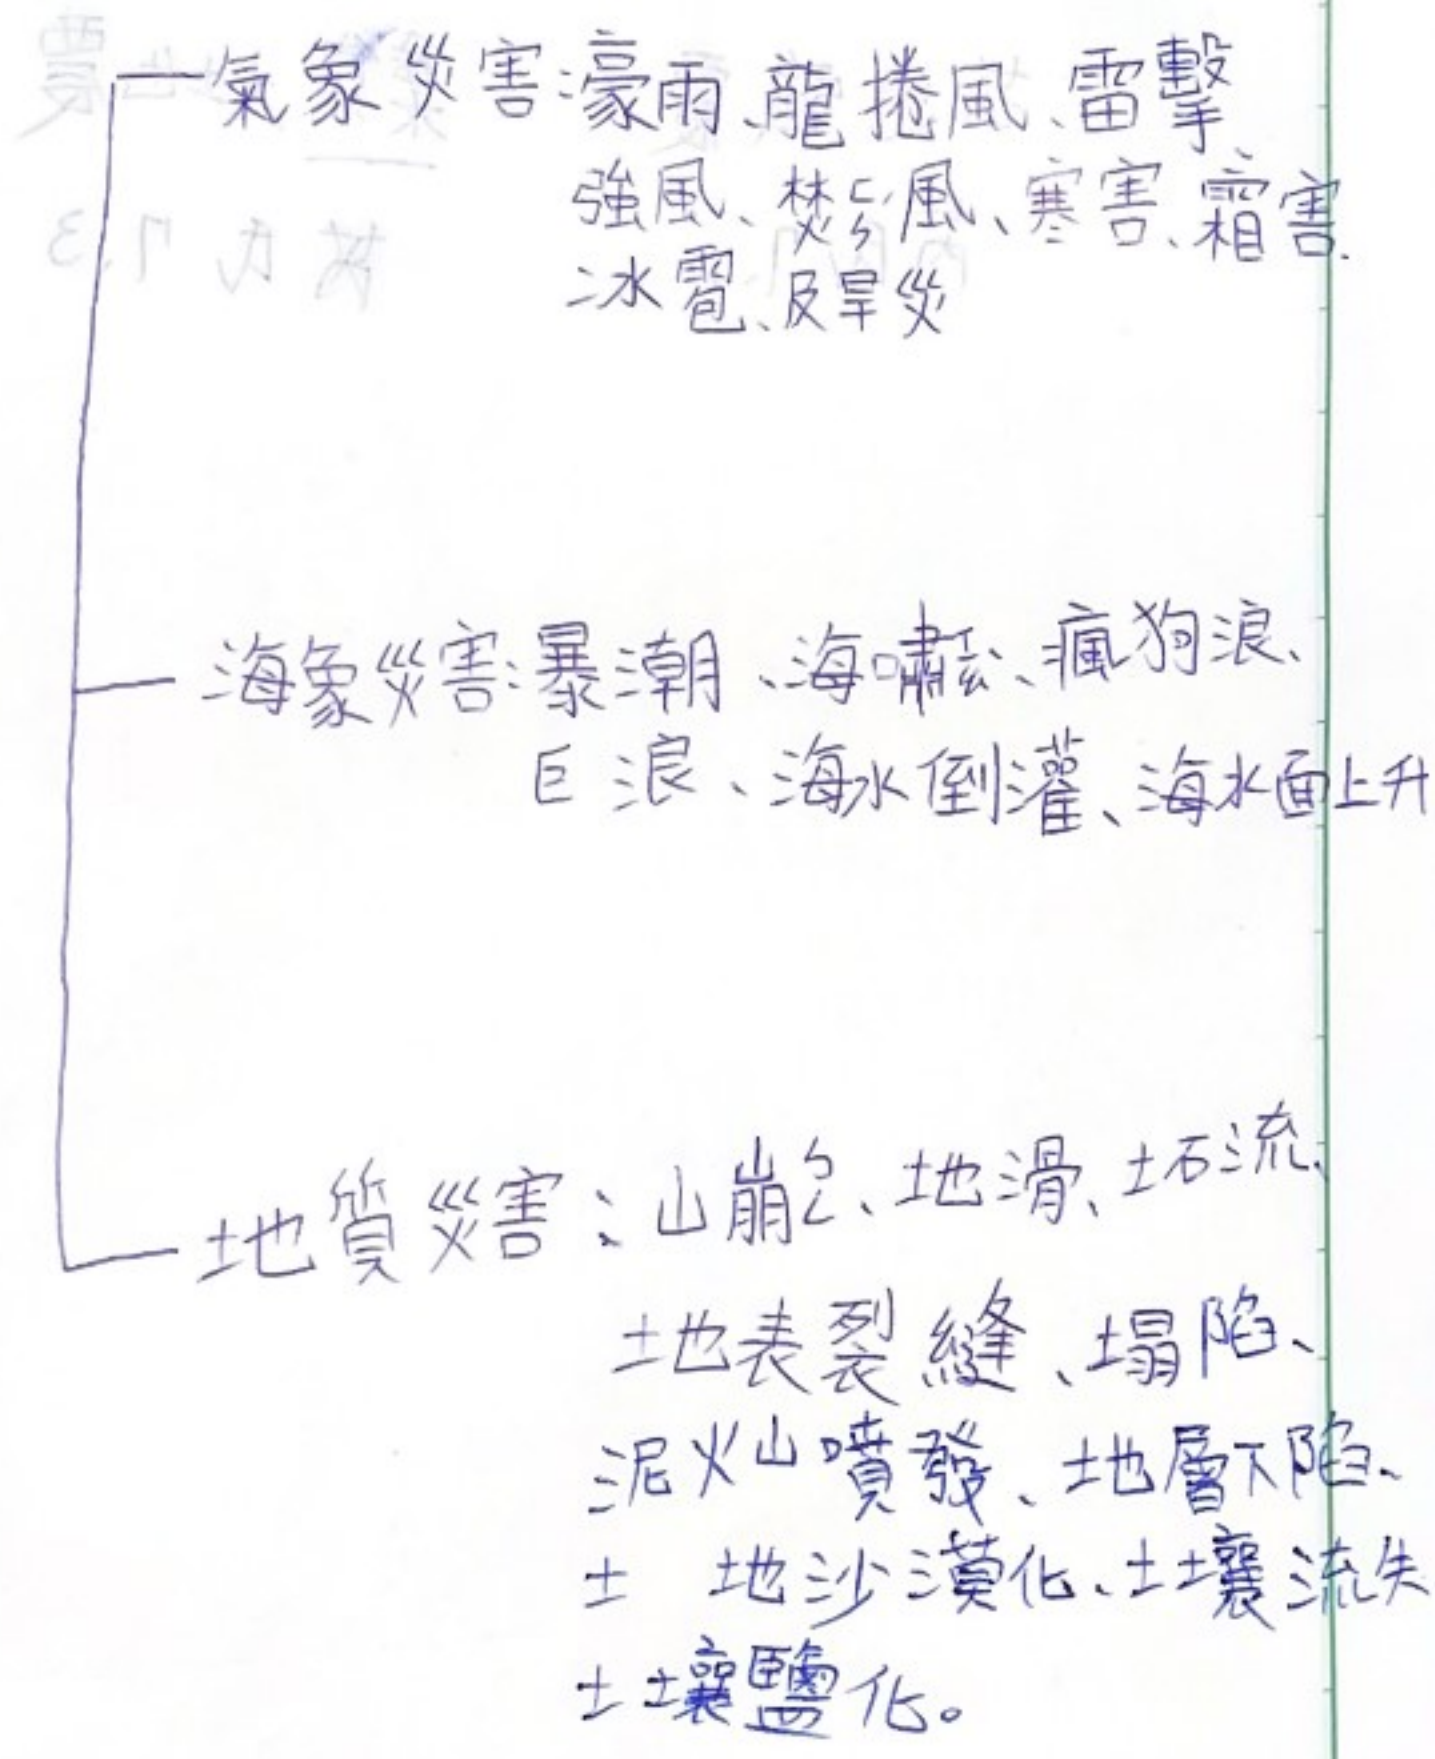 氣象災害:濠雨、龍捲風、雷擊、
強風、焚ㄈㄣˊ風、寒害、霜害、
冰雹、及旱災
海象災害:暴潮、海嘯ㄒㄠ、瘋狗浪、
巨浪、海水倒灌、海水面上升
地質災害:山崩ㄅㄥ、地滑、土石流、
地表裂縫、塌陷、
泥火山噴發、地層下陷、
土 地沙漠化、土壤流失
土壤鹽化。